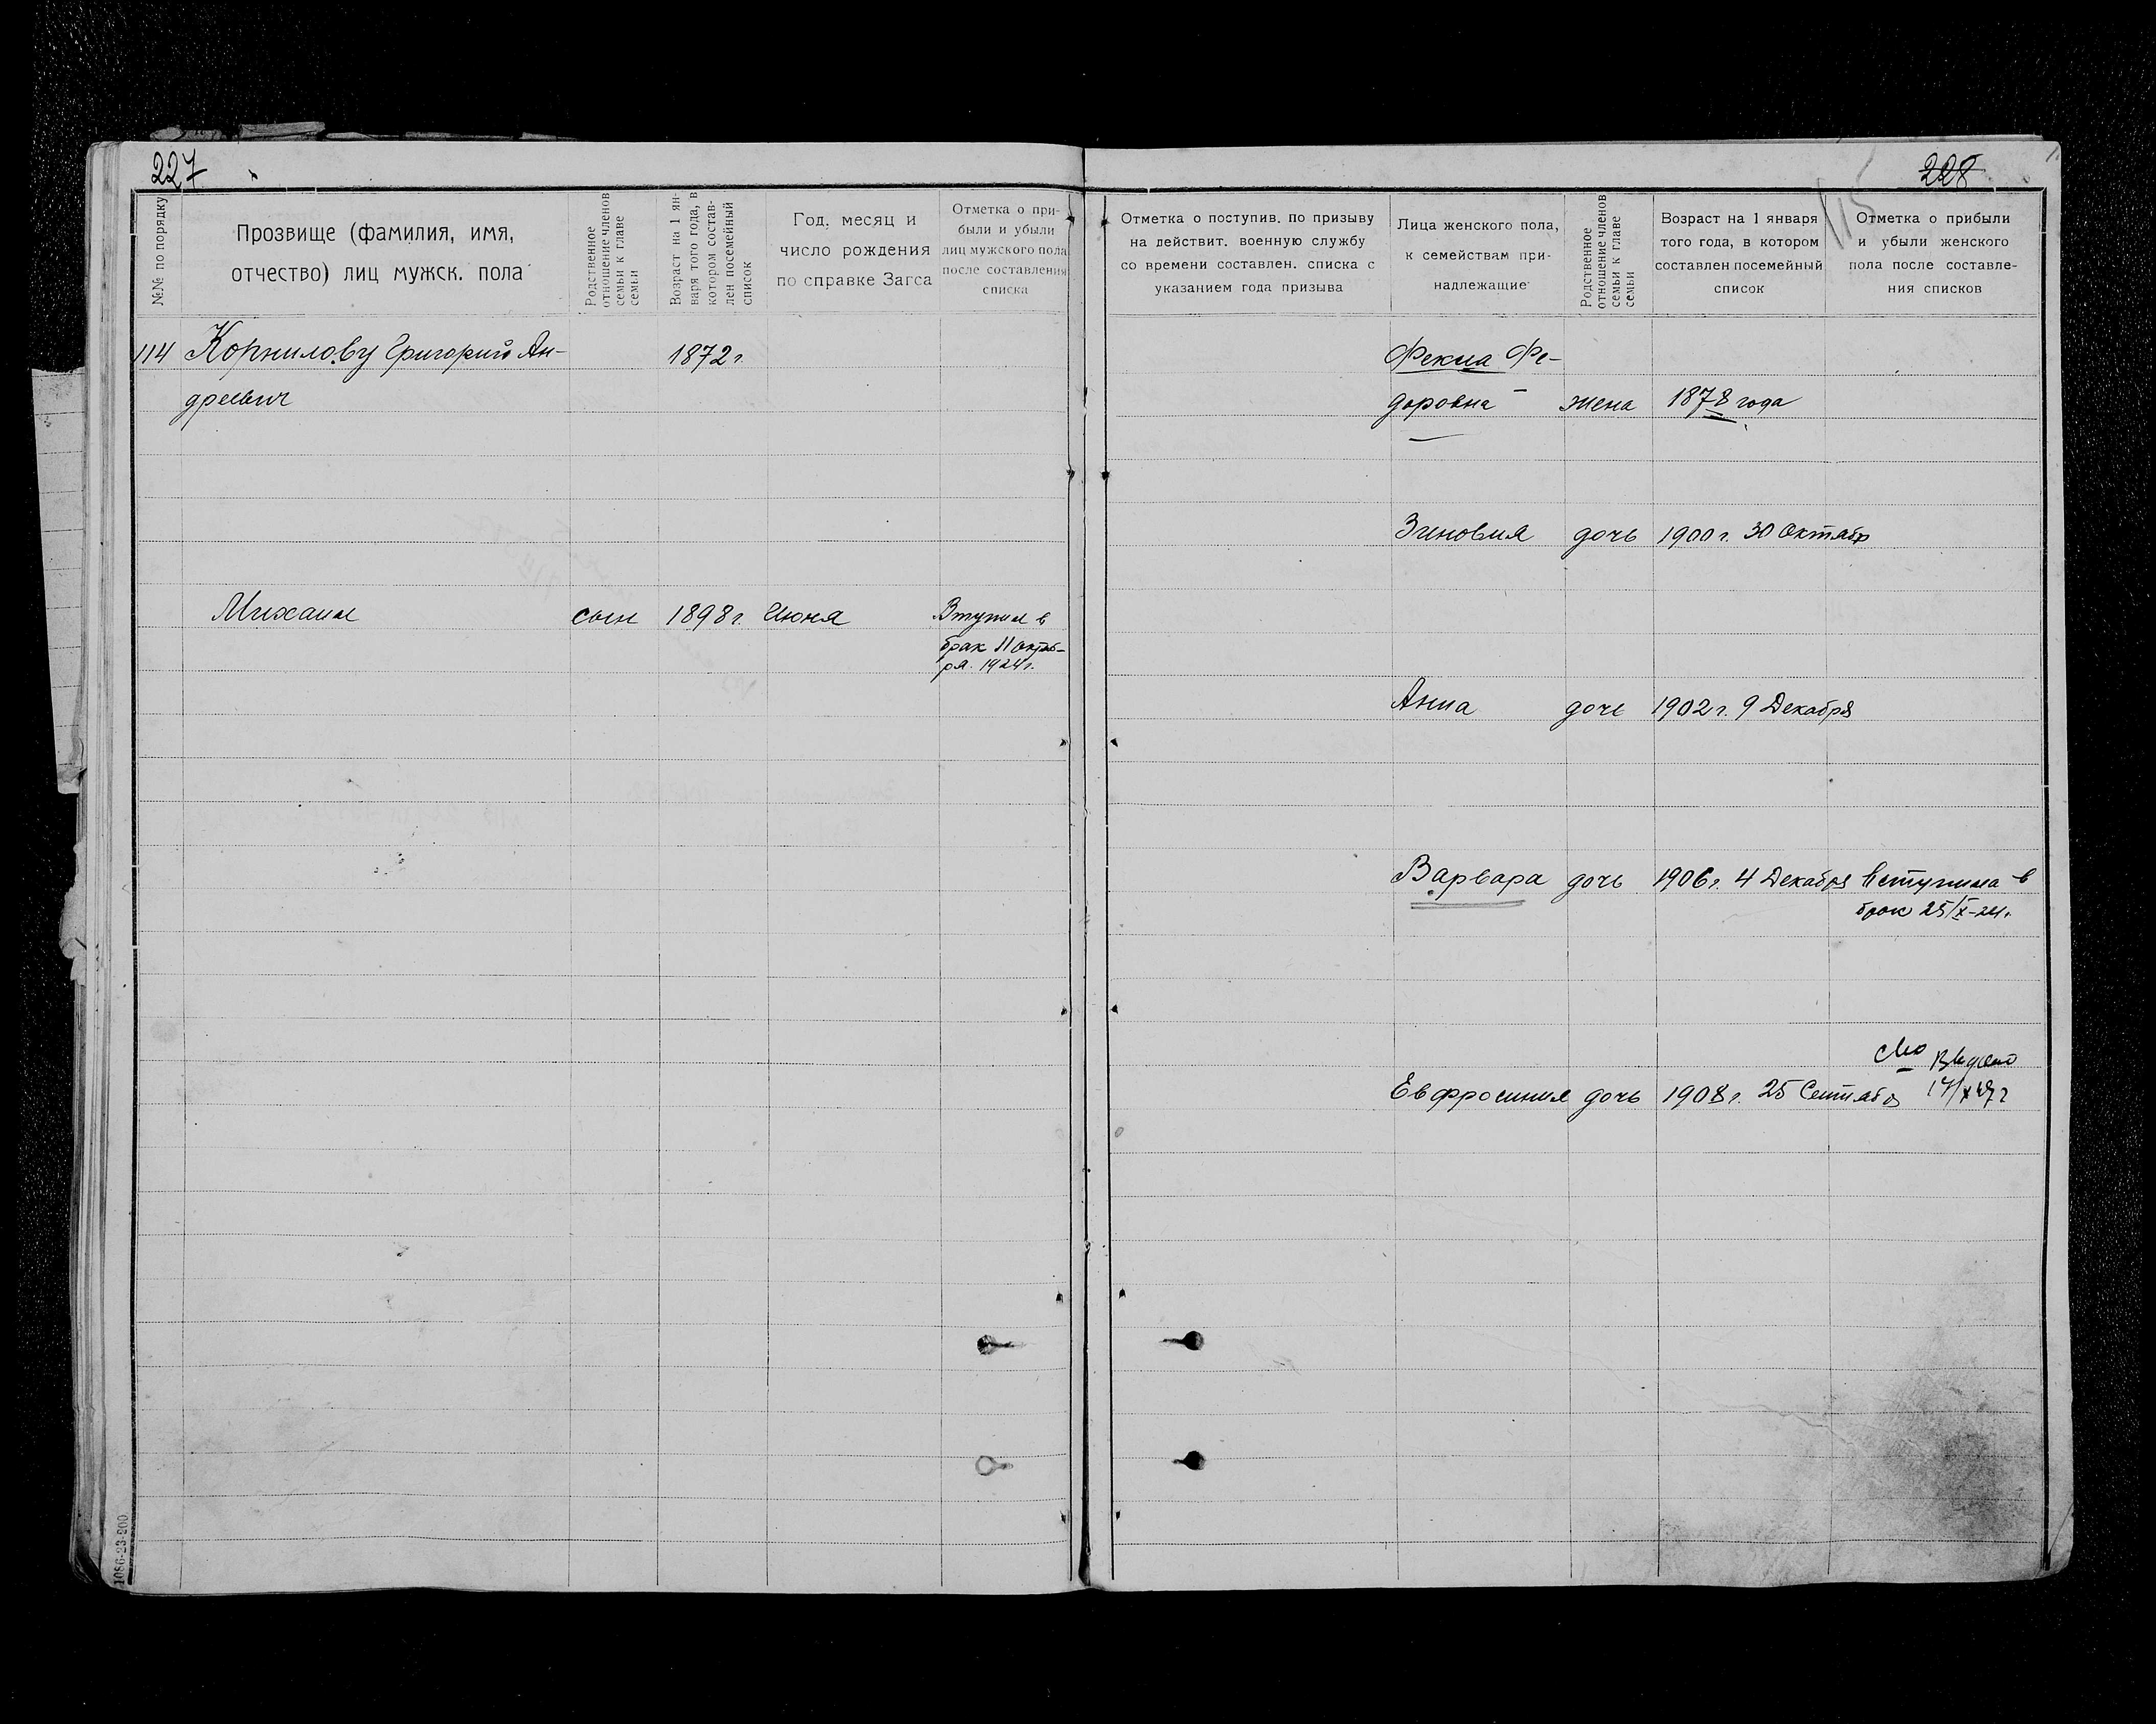 227
№№ по порядку
Прозвище (фамилия, имя,
отчество) лиц мужск. пола
Родственное
отношение членов
семьи к главе
семьи
Возраст на 1 ян-
варя того года, в
котором состав-
лен посемейный
список
Год, месяц и
число рождения
по справке Загса
Отметка о при-
были и убыли
лиц мужского пола
после составления
списка
114 Корнилову Григорий Ан- 1872 г.
дреевич
Михаил сын 1898 г. Июня Втупил в
брак 11 октяб-
ря. 1924 г.
1086-23-200
228
115
Отметка о поступив. по призыву
на действит. военную службу
со времени составлен. списка с
указанием года призыва
Лица женского пола,
к семействам при-
надлежащие
Родственное
отношение членов
семьи к главе
семьи
Возраст на 1 января
того года, в котором
составлен посемейный
список
Отметка о прибыли
и убыли женского
пола после составле-
ния списков
Фекла Фе-
доровна жена 1878 года
Зиновия дочь 1900 г. 30 Октябр
Анна дочь 1902 г. 9 Декабря
Варвара дочь 1906 г. 4 Декабря Вступила в
брак 25/X-24г.
Евфросиния дочь 1908 г. 25 Сентябр